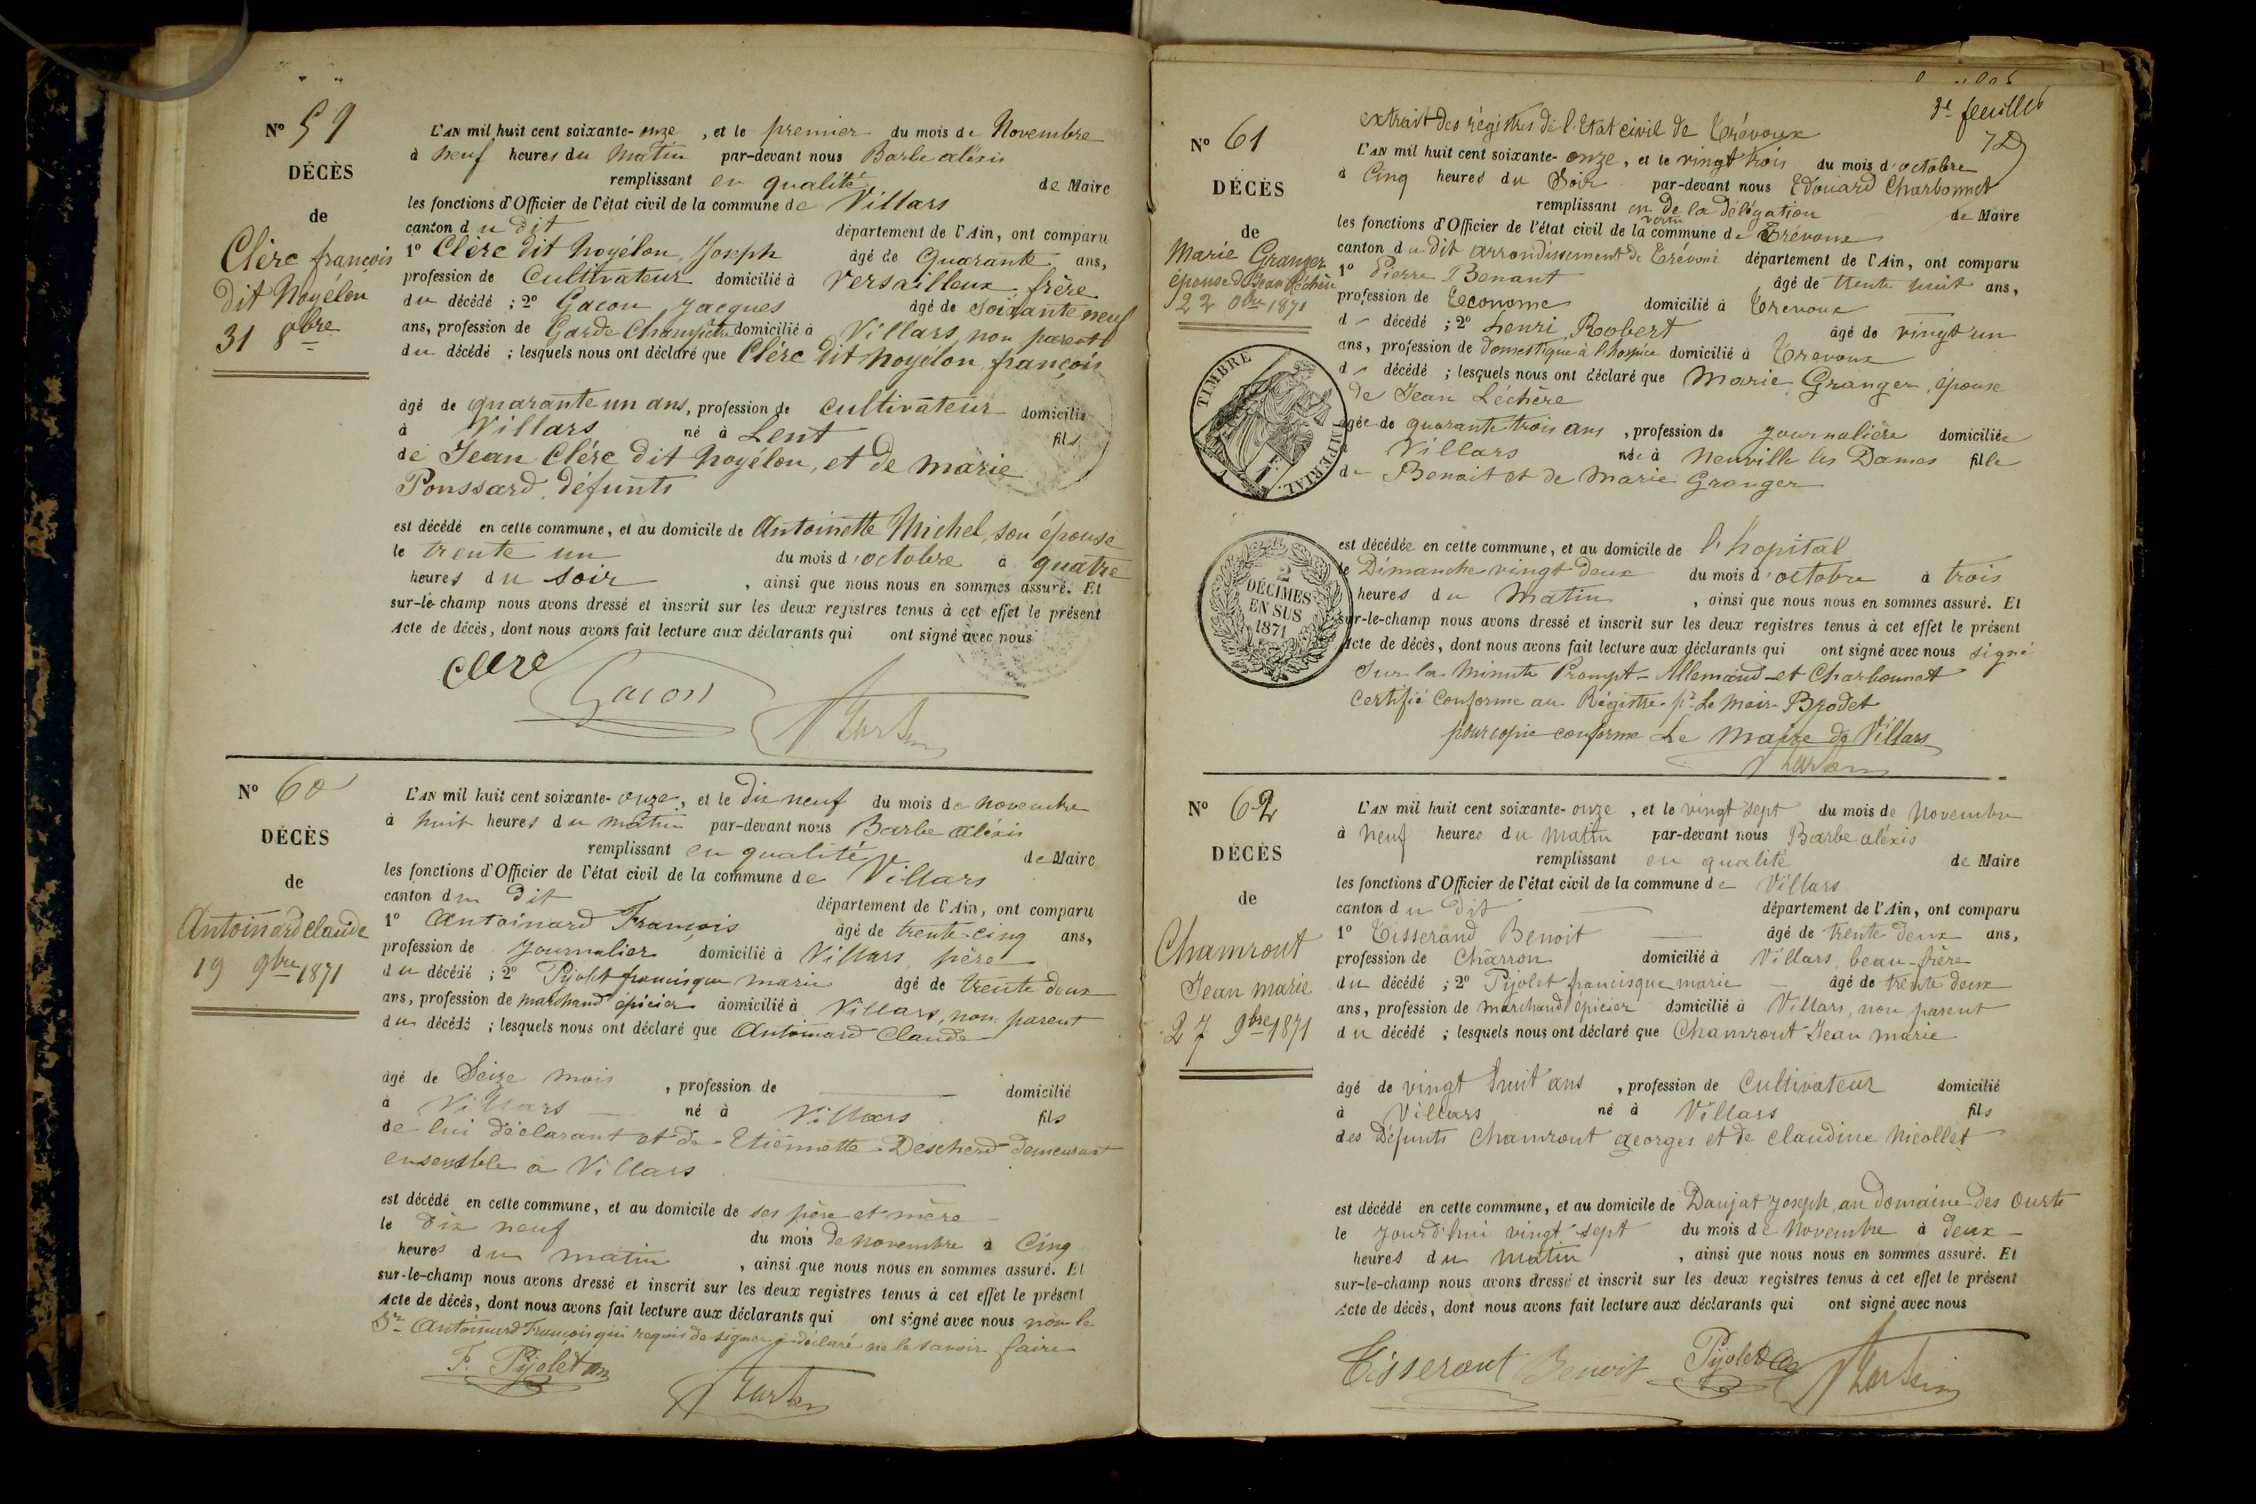 N° 59
DÉCÈS
de
Clèrc françois
dit Noyélon
31 8bre
L'AN mil huit cent soixante-onze, et le premier du mois de Novembre
à neuf heures du matin par-devant nous Barbe aléxis
remplissant en qualité de Maire
les fonctions d'Officier de l'état civil de la commune de Villars
canton du dit département de l'Ain, ont comparu
1° Clèrc dit Noyélon, Joseph âgé de Quarante ans,
profession de Cultivateur domicilié à Versailleux frère
du décédé ; 2° Gacon Jacques âgé de soixante neuf
ans, profession de Garde Champêtre domicilié à Villars, non parent
du décédé ; lesquels nous ont déclaré que Clérc dit Noyelon, françois
âgé de quarante un ans, profession de cultivateur domicilié
à Villars né à Lent fils
de Jean Clérc dit noyélon, et de marie
Poussard, défunts
est décédé en cette commune, et au domicile de Antoinette Michel, son épouse
le trente un du mois d'octobre à quatre
heures du soir, ainsi que nous nous en sommes assuré. Et
sur-le-champ nous avons dressé et inscrit sur les deux registres tenus à cet effet le présent
Acte de décès, dont nous avons fait lecture aux déclarants qui ont signé avec nous
Clerc
Gacon
N° 60
DÉCÈS
de
Antoinard claude
19 9bre 1871
L'AN mil huit cent soixante-onze, et le dix neuf du mois de novembre
à huit heures du matin par-devant nous Barbe aléxis
remplissant en qualité de Maire
les fonctions d'Officier de l'état civil de la commune de Villars
canton du dit département de l'Ain, ont comparu
1° Antoinard François âgé de trente-cinq ans,
profession de Journalier domicilié à Villars, père
du décédé ; 2° Pijolet francisque marie âgé de trente deux
ans, profession de marchand épicier domicilié à Villars, non parent
du décédé ; lesquels nous ont déclaré que Antoinard Claude
âgé de Seize mois, profession de domicilié
à Villars né à Villars fils
de lui déclarant et de Etiennette Descherd demeurant
ensemble à Villars
est décédé en cette commune, et au domicile de ses père et mère
le dix neuf du mois de novembre à Cinq
heures du matin, ainsi que nous nous en sommes assuré. Et
sur-le-champ nous avons dressé et inscrit sur les deux registres tenus à cet effet le présent
Acte de décès, dont nous avons fait lecture aux déclarants qui ont signé avec nous non le
Sr Antoinard François qui requis de signer a déclaré ne le savoir faire
F. Pijolet
3e feuillet
extrait des régistres de l'Etat civil de Trévoux
N° 61
DÉCÈS
de
Marie Granger
épouse de Jean Léchère
22 8bre 1871
L'AN mil huit cent soixante-onze, et le vingt trois du mois d'octobre
à Cinq heures du Soir par-devant nous Edouard Charbonnet
remplissant en vertu de la délégation de Maire
les fonctions d'Officier de l'état civil de la commune de Trévoux
canton du dit arrondissement de Trévoux département de l'Ain, ont comparu
1° Pierre Benant âgé de trente huit ans,
profession de Econome domicilié à Trevoux
d décédé ; 2° henri Robert âgé de vingt un
ans, profession de domestique à l'hospice domicilié à Trevoux
d décédé ; lesquels nous ont déclaré que Marie Granger, épouse
de Jean Léchère
agée de quarante trois ans, profession de journalière domiciliée
Villars née à Neuville les Dames fille
de Benoit et de Marie Granger
est décédée en cette commune, et au domicile de l'hopital
le Dimanche vingt deux du mois d'octobre à trois
heures du Matin, ainsi que nous nous en sommes assuré. Et
sur-le-champ nous avons dressé et inscrit sur les deux registres tenus à cet effet le présent
Acte de décès, dont nous avons fait lecture aux déclarants qui ont signé avec nous signé
Sur la minute Prompt - Allemand et Charbonnet
Certifié Conforme au Régistre pr Le Maire Brodet
pour copie conforme Le Maire de Villars
TIMBRE IMPÉRIAL
2 DÉCIMES EN SUS 1871
N° 62
DÉCÈS
de
Chamrout
Jean marie
27 9bre 1871
L'AN mil huit cent soixante-onze, et le vingt sept du mois de Novembre
à neuf heures du matin par-devant nous Barbe aléxis
remplissant en qualité de Maire
les fonctions d'Officier de l'état civil de la commune de Villars
canton du dit département de l'Ain, ont comparu
1° Tisserand Benoit âgé de trente deux ans,
profession de Charron domicilié à Villars, beau-frère
du décédé ; 2° Pijolet francisque marie âgé de trente deux
ans, profession de marchand épicier domicilié à Villars, non parent
du décédé ; lesquels nous ont déclaré que Chamrout Jean marie
âgé de vingt huit ans, profession de Cultivateur domicilié
à Villars né à Villars fils
des Défunts Chamrout georges et de claudine Nicollet
est décédé en cette commune, et au domicile de Daujat Joseph, au domaine des Ourts
le jourd'hui vingt sept du mois de Novembre à deux
heures du matin, ainsi que nous nous en sommes assuré. Et
sur-le-champ nous avons dressé et inscrit sur les deux registres tenus à cet effet le présent
Acte de décès, dont nous avons fait lecture aux déclarants qui ont signé avec nous
Tisserant Benoit Pijolet